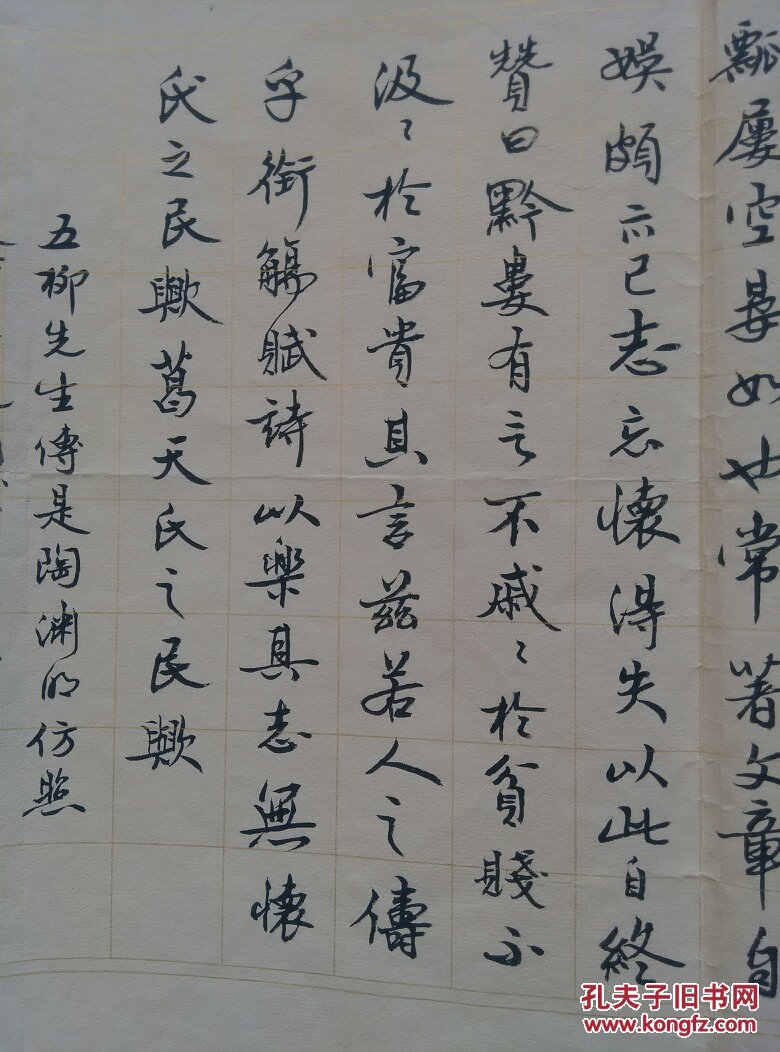 瓢屡空晏如也常著文章自
娱頗示己志忘懷得失以此自終
贊曰黔婁有言不戚〻於貧賤不
汲〻於富貴其言兹若人之儔
乎銜觴賦詩以樂其志無懷
氏之民歟葛天氏之民歟
五柳先生傳是陶渊明仿照
孔夫子旧书网
www.kongfz.com